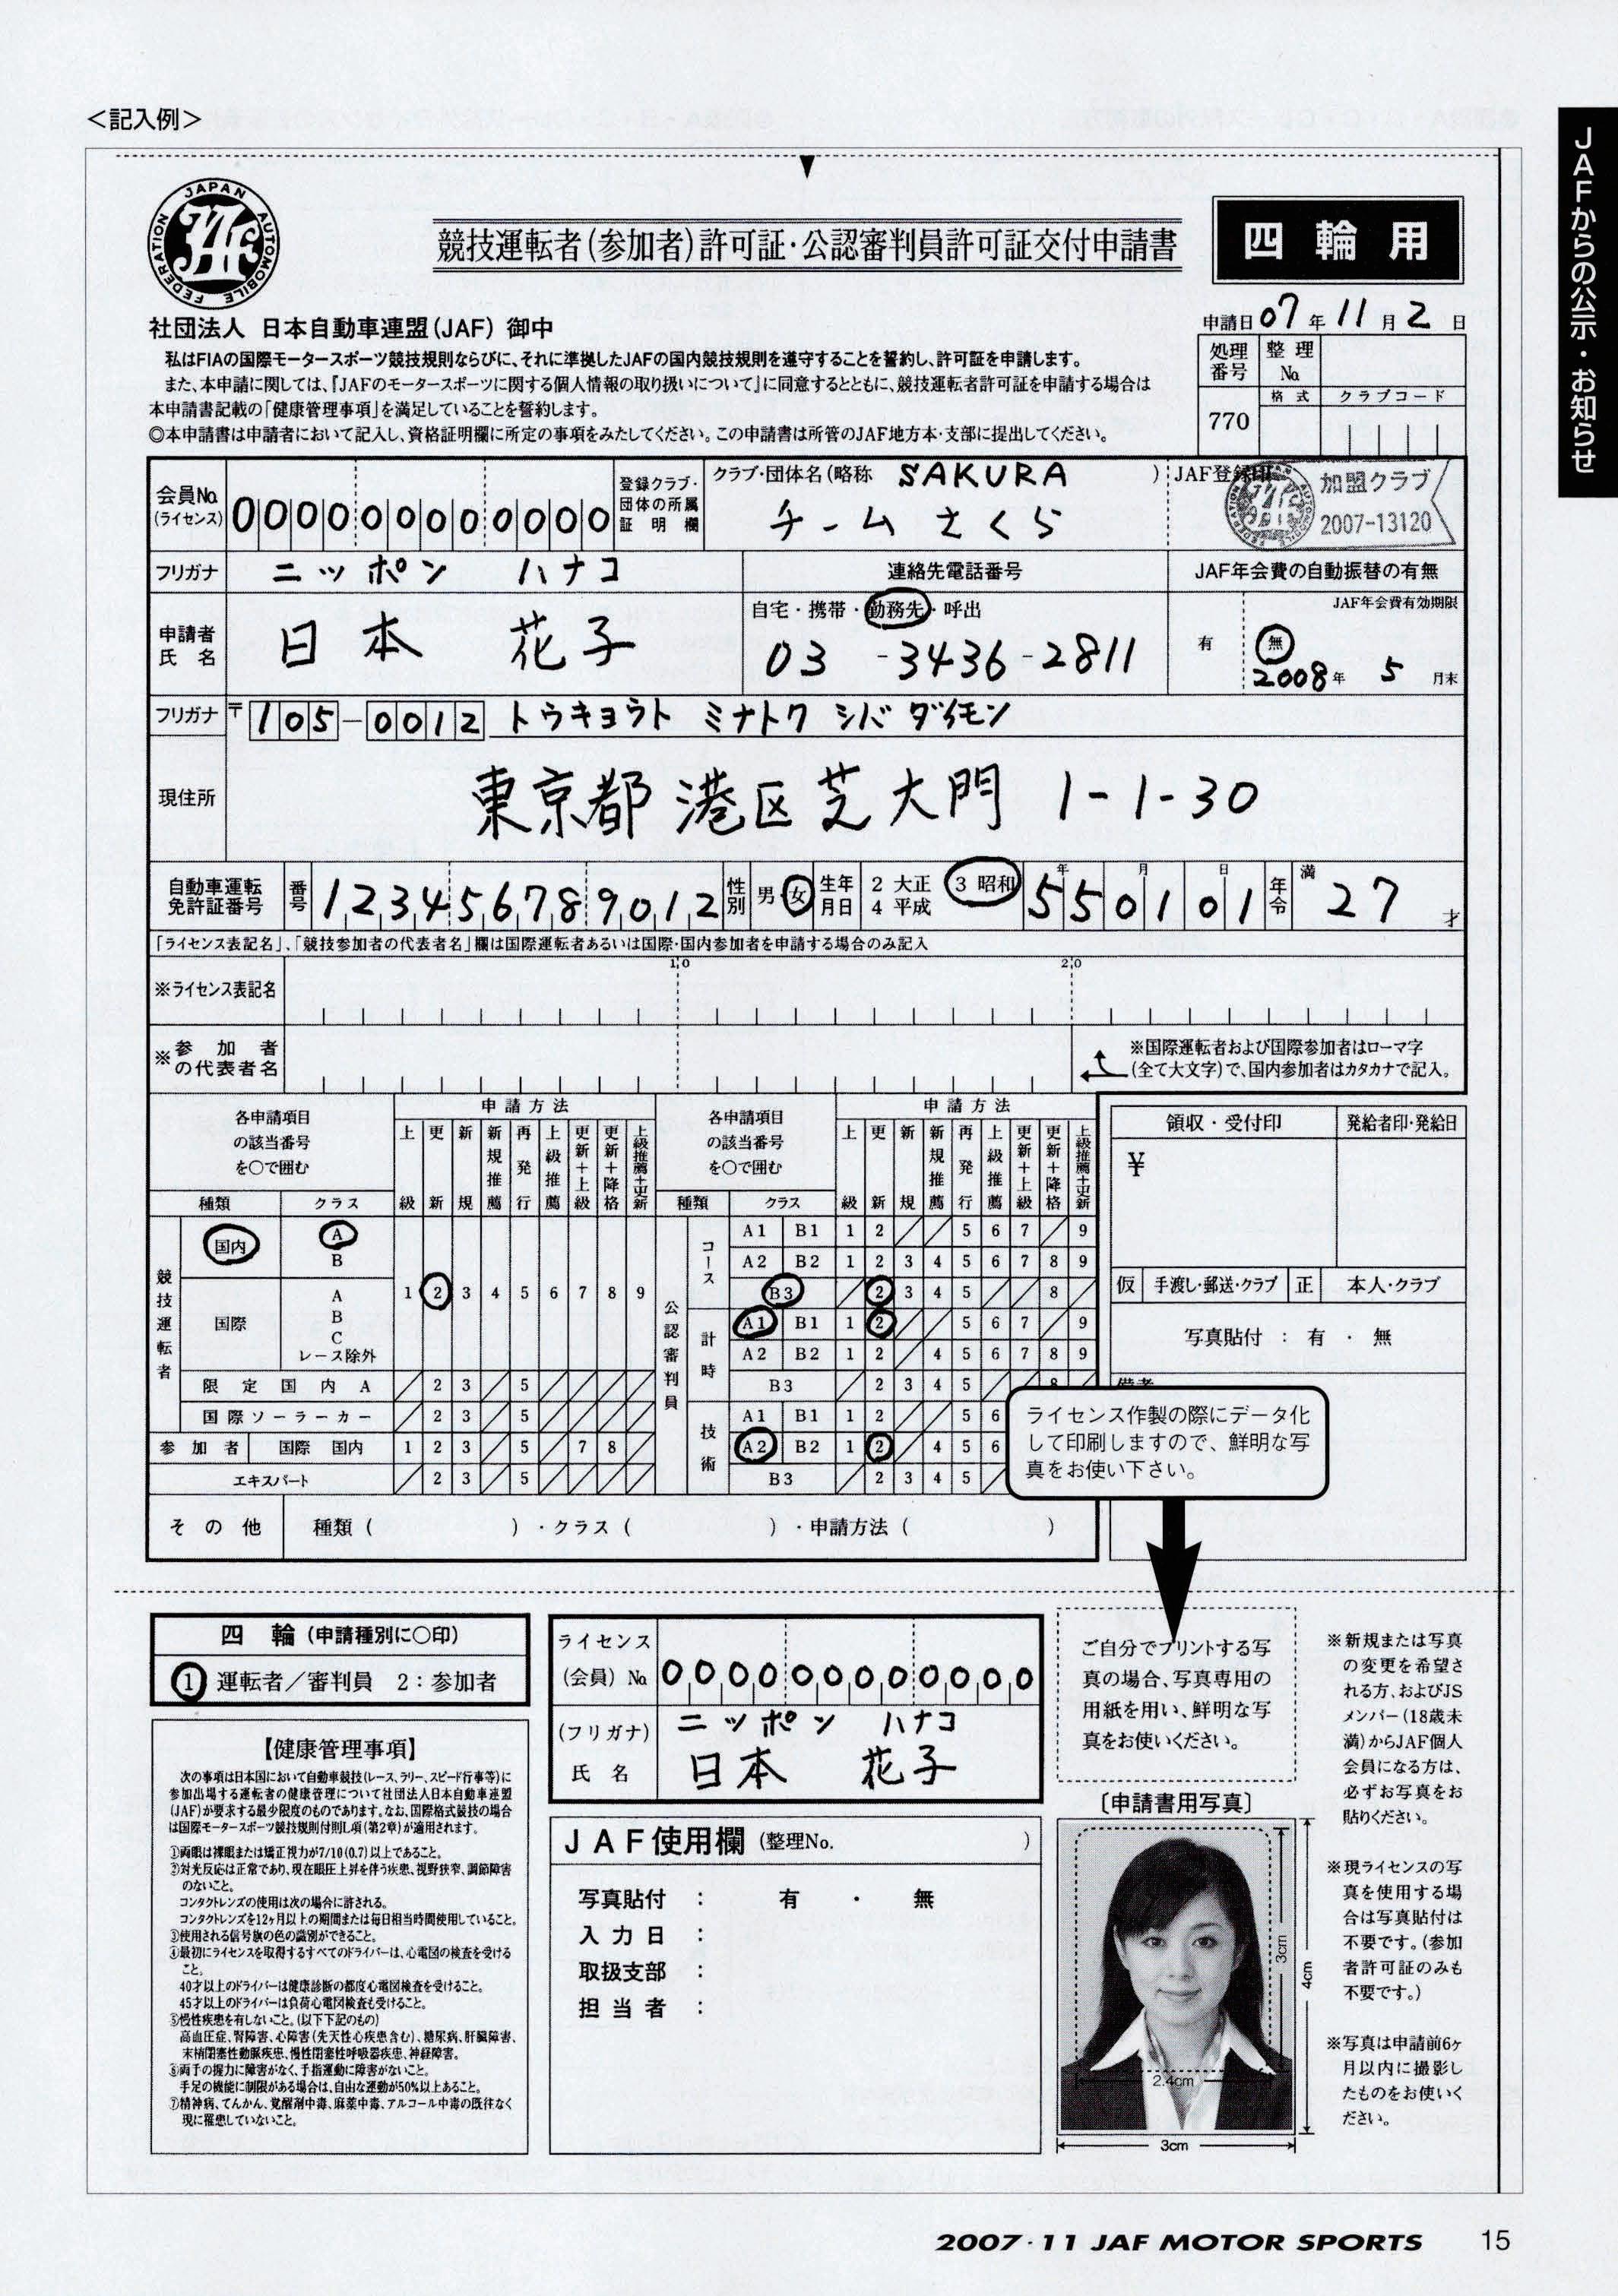 <記入例>
JAFからの公示・お知らせ
JAPAN AUTOMOBILE FEDERATION
JAF
競技運転者(参加者)許可証・公認審判員許可証交付申請書
四輪用
社団法人 日本自動車連盟(JAF) 御中
申請日 07年 11月 2日
私はFIAの国際モータースポーツ競技規則ならびに、それに準拠したJAFの国内競技規則を遵守することを誓約し、許可証を申請します。
また、本申請に関しては、『JAFのモータースポーツに関する個人情報の取り扱いについて』に同意するとともに、競技運転者許可証を申請する場合は
本申請書記載の「健康管理事項」を満足していることを誓約します。
◎本申請書は申請者において記入し、資格証明欄に所定の事項をみたしてください。この申請書は所管のJAF地方本・支部に提出してください。
処理番号 整理No.
770 格式 クラブコード
会員No.(ライセンス) 000000000000
登録クラブ・団体の所属証明欄
クラブ・団体名(略称 SAKURA )
チームさくら
JAF登録印
加盟クラブ
2007-13120
フリガナ ニッポン ハナコ
連絡先電話番号
JAF年会費の自動振替の有無
申請者氏名 日本 花子
自宅・携帯・勤務先・呼出
03-3436-2811
JAF年会費有効期限
有 無
2008年 5月末
フリガナ 〒105-0012 トウキョウト ミナトク シバダイモン
現住所 東京都港区芝大門 1-1-30
自動車運転免許証番号 番号 123456789012 性別 男・女 生年月日 2 大正 3 昭和 4 平成 55年01月01日 年令 満27才
「ライセンス表記名」、「競技参加者の代表者名」欄は国際運転者あるいは国際・国内参加者を申請する場合のみ記入
10 20
※ライセンス表記名
※参加者の代表者名
※国際運転者および国際参加者はローマ字
(全て大文字)で、国内参加者はカタカナで記入。
各申請項目の該当番号を○で囲む 申請方法 各申請項目の該当番号を○で囲む 申請方法
種類 クラス 上級 更新 新規 新規推薦 再発行 上級推薦 更新+上級 更新+降格 上級推薦+更新
種類 クラス 上級 更新 新規 新規推薦 再発行 上級推薦 更新+上級 更新+降格 上級推薦+更新
競技運転者 国内 A B
国際 A B C レース除外
1 2 3 4 5 6 7 8 9
限定国内A 2 3 5
国際ソーラーカー 2 3 5
参加者 国際 国内 1 2 3 5 7 8
エキスパート 2 3 5
公認審判員
コース A1 B1 1 2 5 6 7 9
A2 B2 1 2 3 4 5 6 7 8 9
B3 2 3 4 5 8
計時 A1 B1 1 2 5 6 7 9
A2 B2 1 2 4 5 6 7 8 9
B3 2 3 4 5 8
技術 A1 B1 1 2 5 6
A2 B2 1 2 4 5 6
B3 2 3 4 5
その他 種類( )・クラス( )・申請方法( )
領収・受付印 発給者印・発給日
¥
仮 手渡し・郵送・クラブ 正 本人・クラブ
写真貼付 : 有 ・ 無
備考
ライセンス作製の際にデータ化
して印刷しますので、鮮明な写
真をお使い下さい。
四 輪(申請種別に○印)
1 運転者/審判員 2:参加者
【健康管理事項】
次の事項は日本国において自動車競技(レース、ラリー、スピード行事等)に
参加出場する運転者の健康管理について社団法人日本自動車連盟
(JAF)が要求する最少限度のものであります。なお、国際格式競技の場合
は国際モータースポーツ競技規則付則L項(第2章)が適用されます。
①両眼は裸眼または矯正視力が7/10(0.7)以上であること。
②対光反応は正常であり、現在眼圧上昇を伴う疾患、視野狭窄、調節障害
のないこと。
コンタクトレンズの使用は次の場合に許される。
コンタクトレンズを12ヶ月以上の期間または毎日相当時間使用していること。
③使用される信号旗の色の識別ができること。
④最初にライセンスを取得するすべてのドライバーは、心電図の検査を受ける
こと。
40才以上のドライバーは健康診断の都度心電図検査を受けること。
45才以上のドライバーは負荷心電図検査も受けること。
⑤慢性疾患を有しないこと。(以下下記のもの)
高血圧症、腎障害、心障害(先天性心疾患含む)、糖尿病、肝臓障害、
末梢閉塞性動脈疾患、慢性閉塞性呼吸器疾患、神経障害。
⑥両手の握力に障害がなく、手指運動に障害がないこと。
手足の機能に制限がある場合は、自由な運動が50%以上あること。
⑦精神病、てんかん、覚醒剤中毒、麻薬中毒、アルコール中毒の既往なく
現に罹患していないこと。
ライセンス(会員)No. 000000000000
(フリガナ) ニッポン ハナコ
氏名 日本 花子
JAF使用欄(整理No. )
写真貼付 : 有 ・ 無
入力日 :
取扱支部 :
担当者 :
ご自分でプリントする写
真の場合、写真専用の
用紙を用い、鮮明な写
真をお使いください。
〔申請書用写真〕
3cm
4cm
2.4cm
3cm
※新規または写真
の変更を希望さ
れる方、およびJS
メンバー(18歳未
満)からJAF個人
会員になる方は、
必ずお写真をお
貼りください。
※現ライセンスの写
真を使用する場
合は写真貼付は
不要です。(参加
者許可証のみも
不要です。)
※写真は申請前6ヶ
月以内に撮影し
たものをお使いく
ださい。
2007・11 JAF MOTOR SPORTS 15